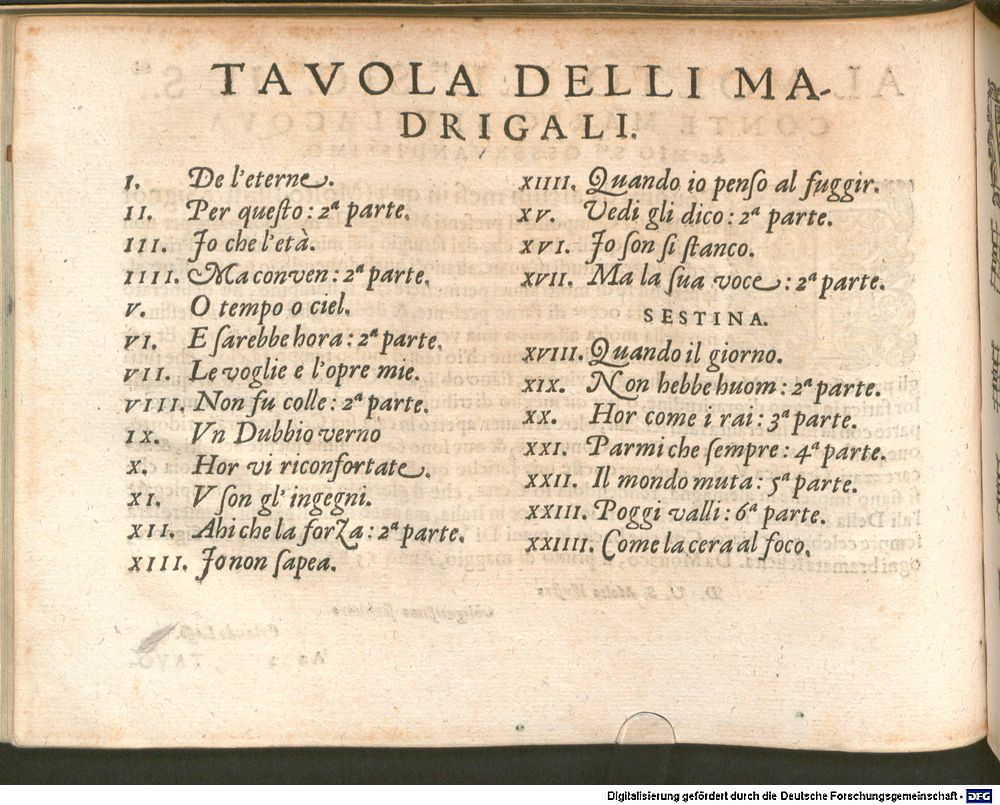 TAVOLA DELLI MA-
DRIGALI.
I. De l'eterne.
II. Per questo: 2ª parte.
III. Jo che l'età.
IIII. Ma conven: 2ª parte.
V. O tempo o ciel.
VI. E sarebbe hora: 2ª parte.
VII. Le voglie e l'opre mie.
VIII. Non fu colle: 2ª parte.
IX. Vn Dubbio verno
X. Hor vi riconfortate.
XI. V son gl' ingegni.
XII. Ahi che la forza: 2ª parte.
XIII. Jo non sapea.
XIIII. Quando io penso al fuggir.
XV. Vedi gli dico: 2ª parte.
XVI. Jo son si stanco.
XVII. Ma la sua voce: 2ª parte.
SESTINA.
XVIII. Quando il giorno.
XIX. Non hebbe huom: 2ª parte.
XX. Hor come i rai: 3ª parte.
XXI. Parmi che sempre: 4ª parte.
XXII. Il mondo muta: 5ª parte.
XXIII. Poggi valli: 6ª parte.
XXIIII. Come la cera al foco.
Digitalisierung gefördert durch die Deutsche Forschungsgemeinschaft - DFG